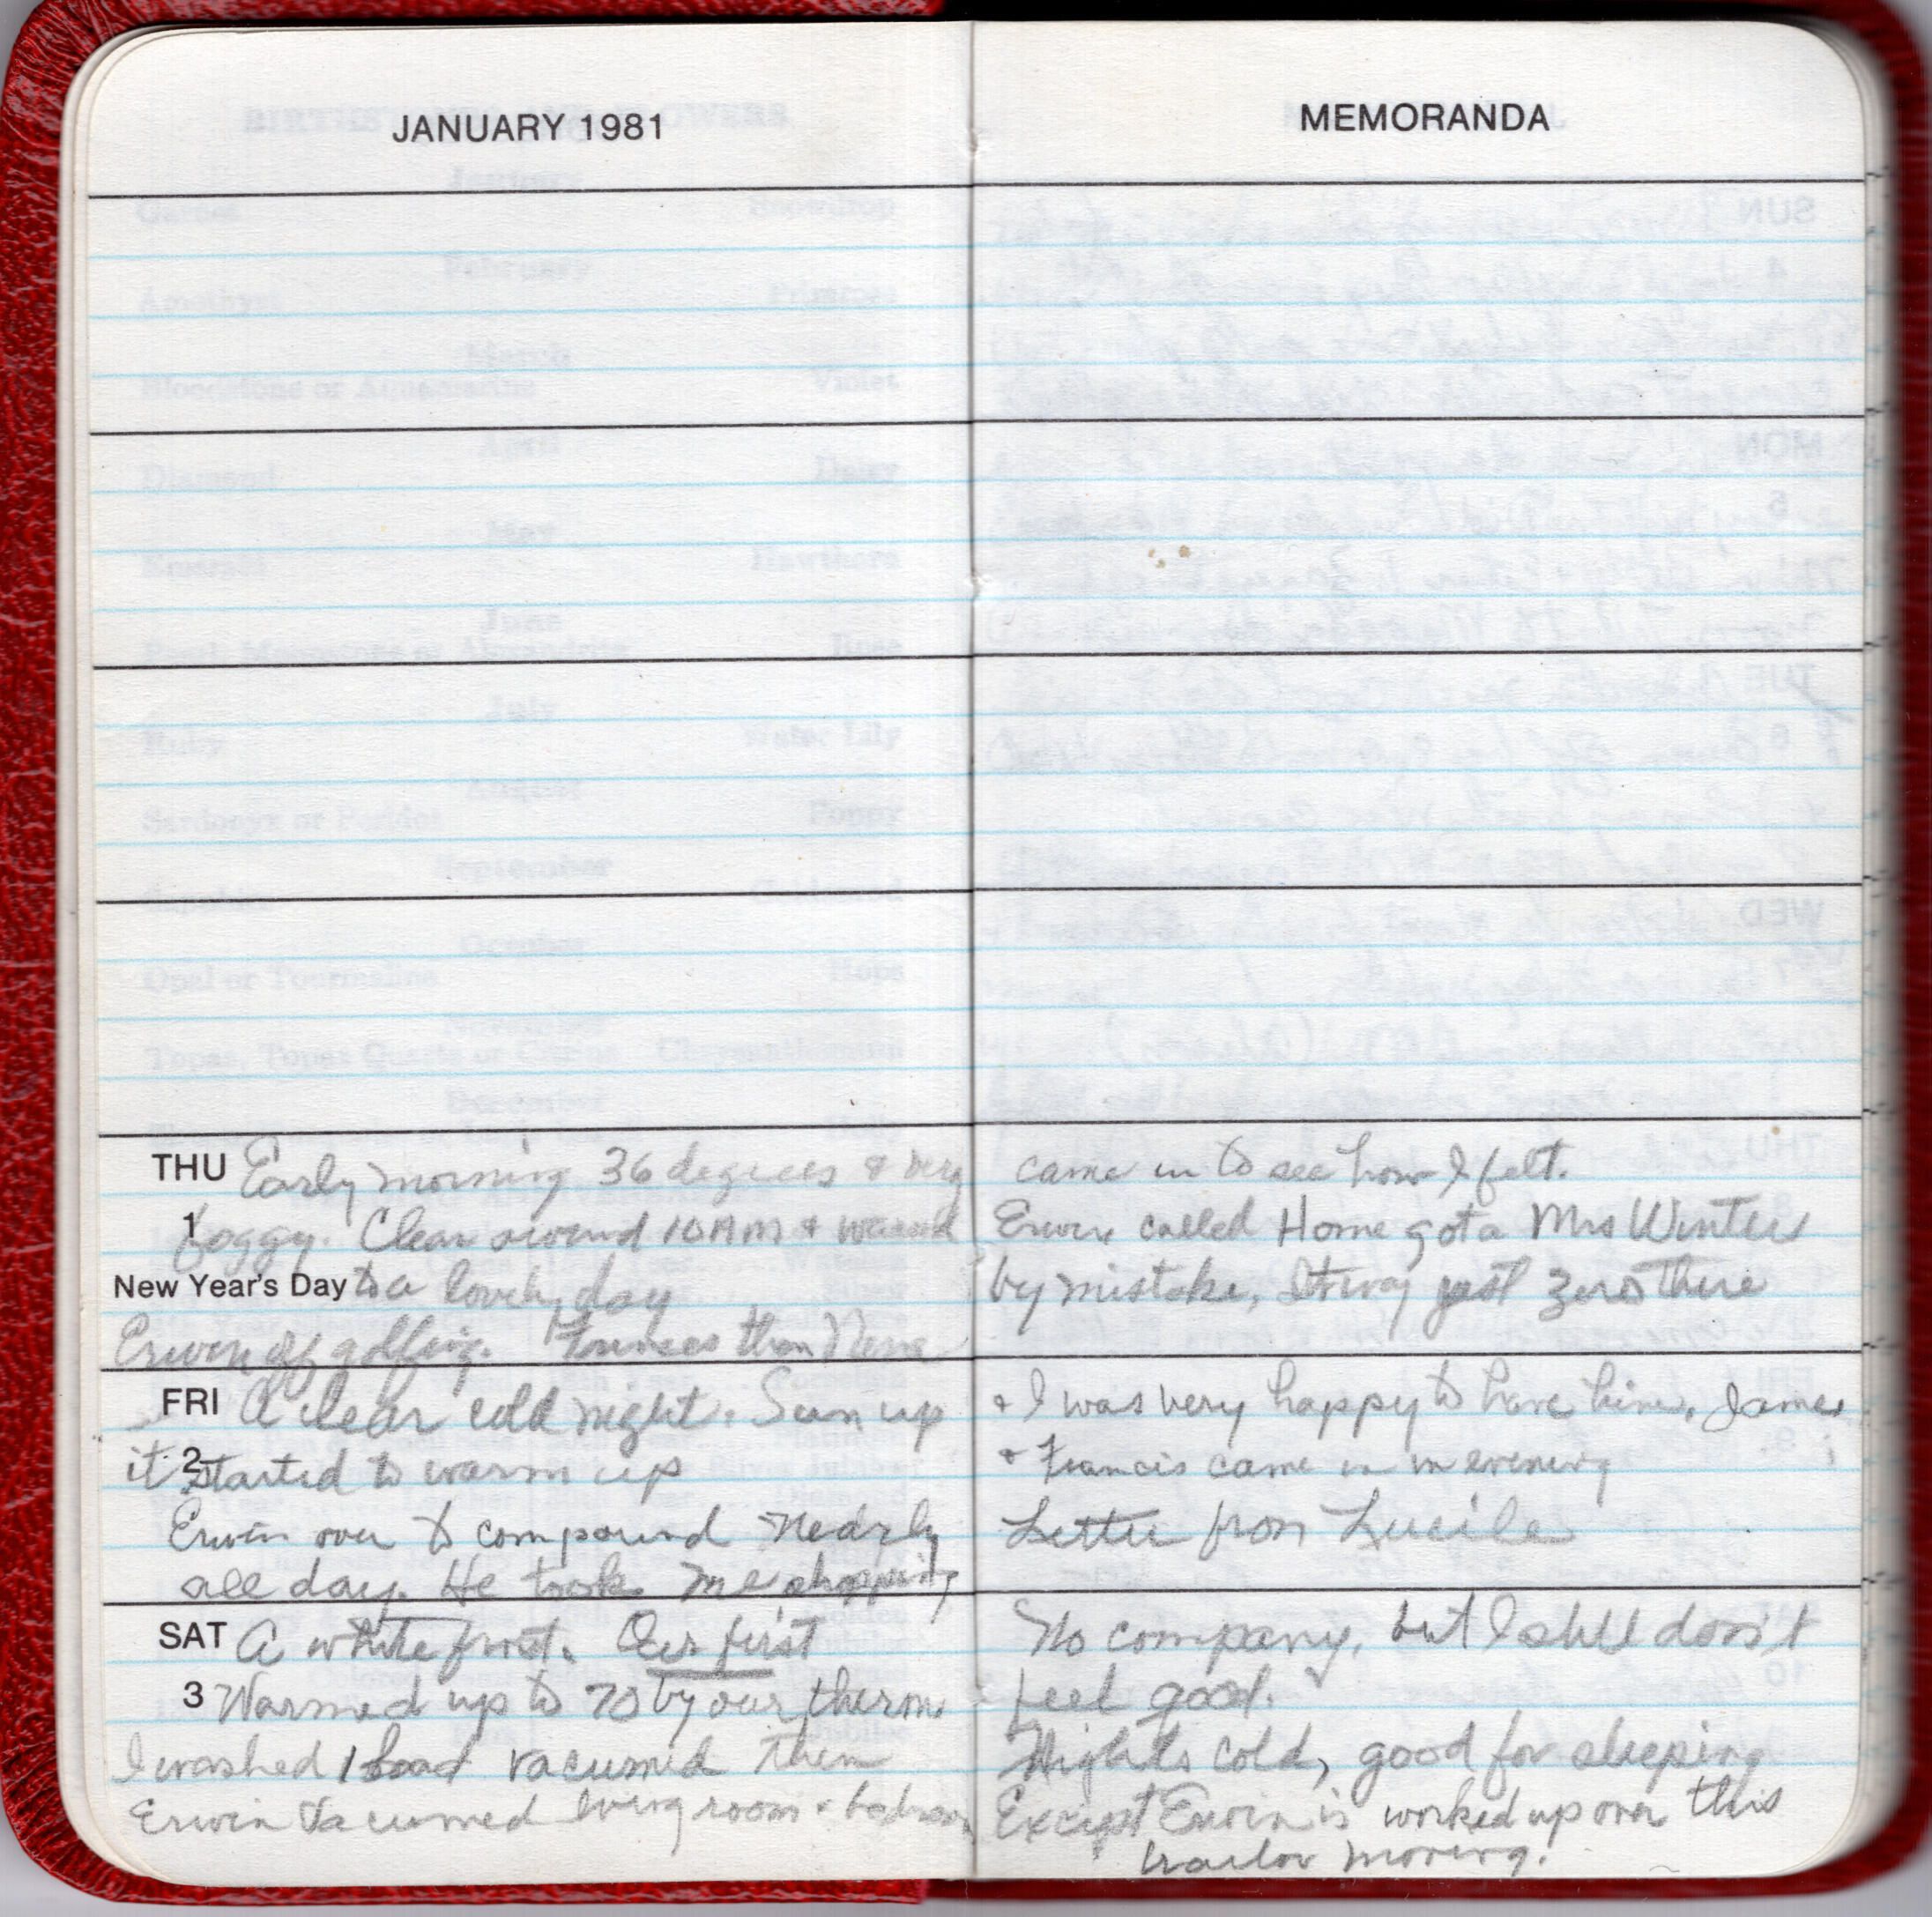 JANUARY 1981
THU Early morning 36 degrees & very
1 foggy. Clear around 10 AM & warmed
New Year's Day to a lovely day
Erwin golfing. Frances then
FRI A clear cold night. Sun up
2 it started to warm up
Erwin over to compound nearly
all day. He took me shopping
SAT A white frost. Our first
3 Warmed up to 70 by our therm.
I washed 1 load vacumed then
Erwin Vacumed living room & bedroom
MEMORANDA
came in to see how I felt.
Erwin called Home got a Mrs Winter
by mistake, It was just zero there
& I was very happy to have him. James
& Francis came in in evening
Letter from Lucile
No company, but I still don't
feel good.
Nights cold, good for sleeping
Except Erwin is worked up over this
trailor moving.